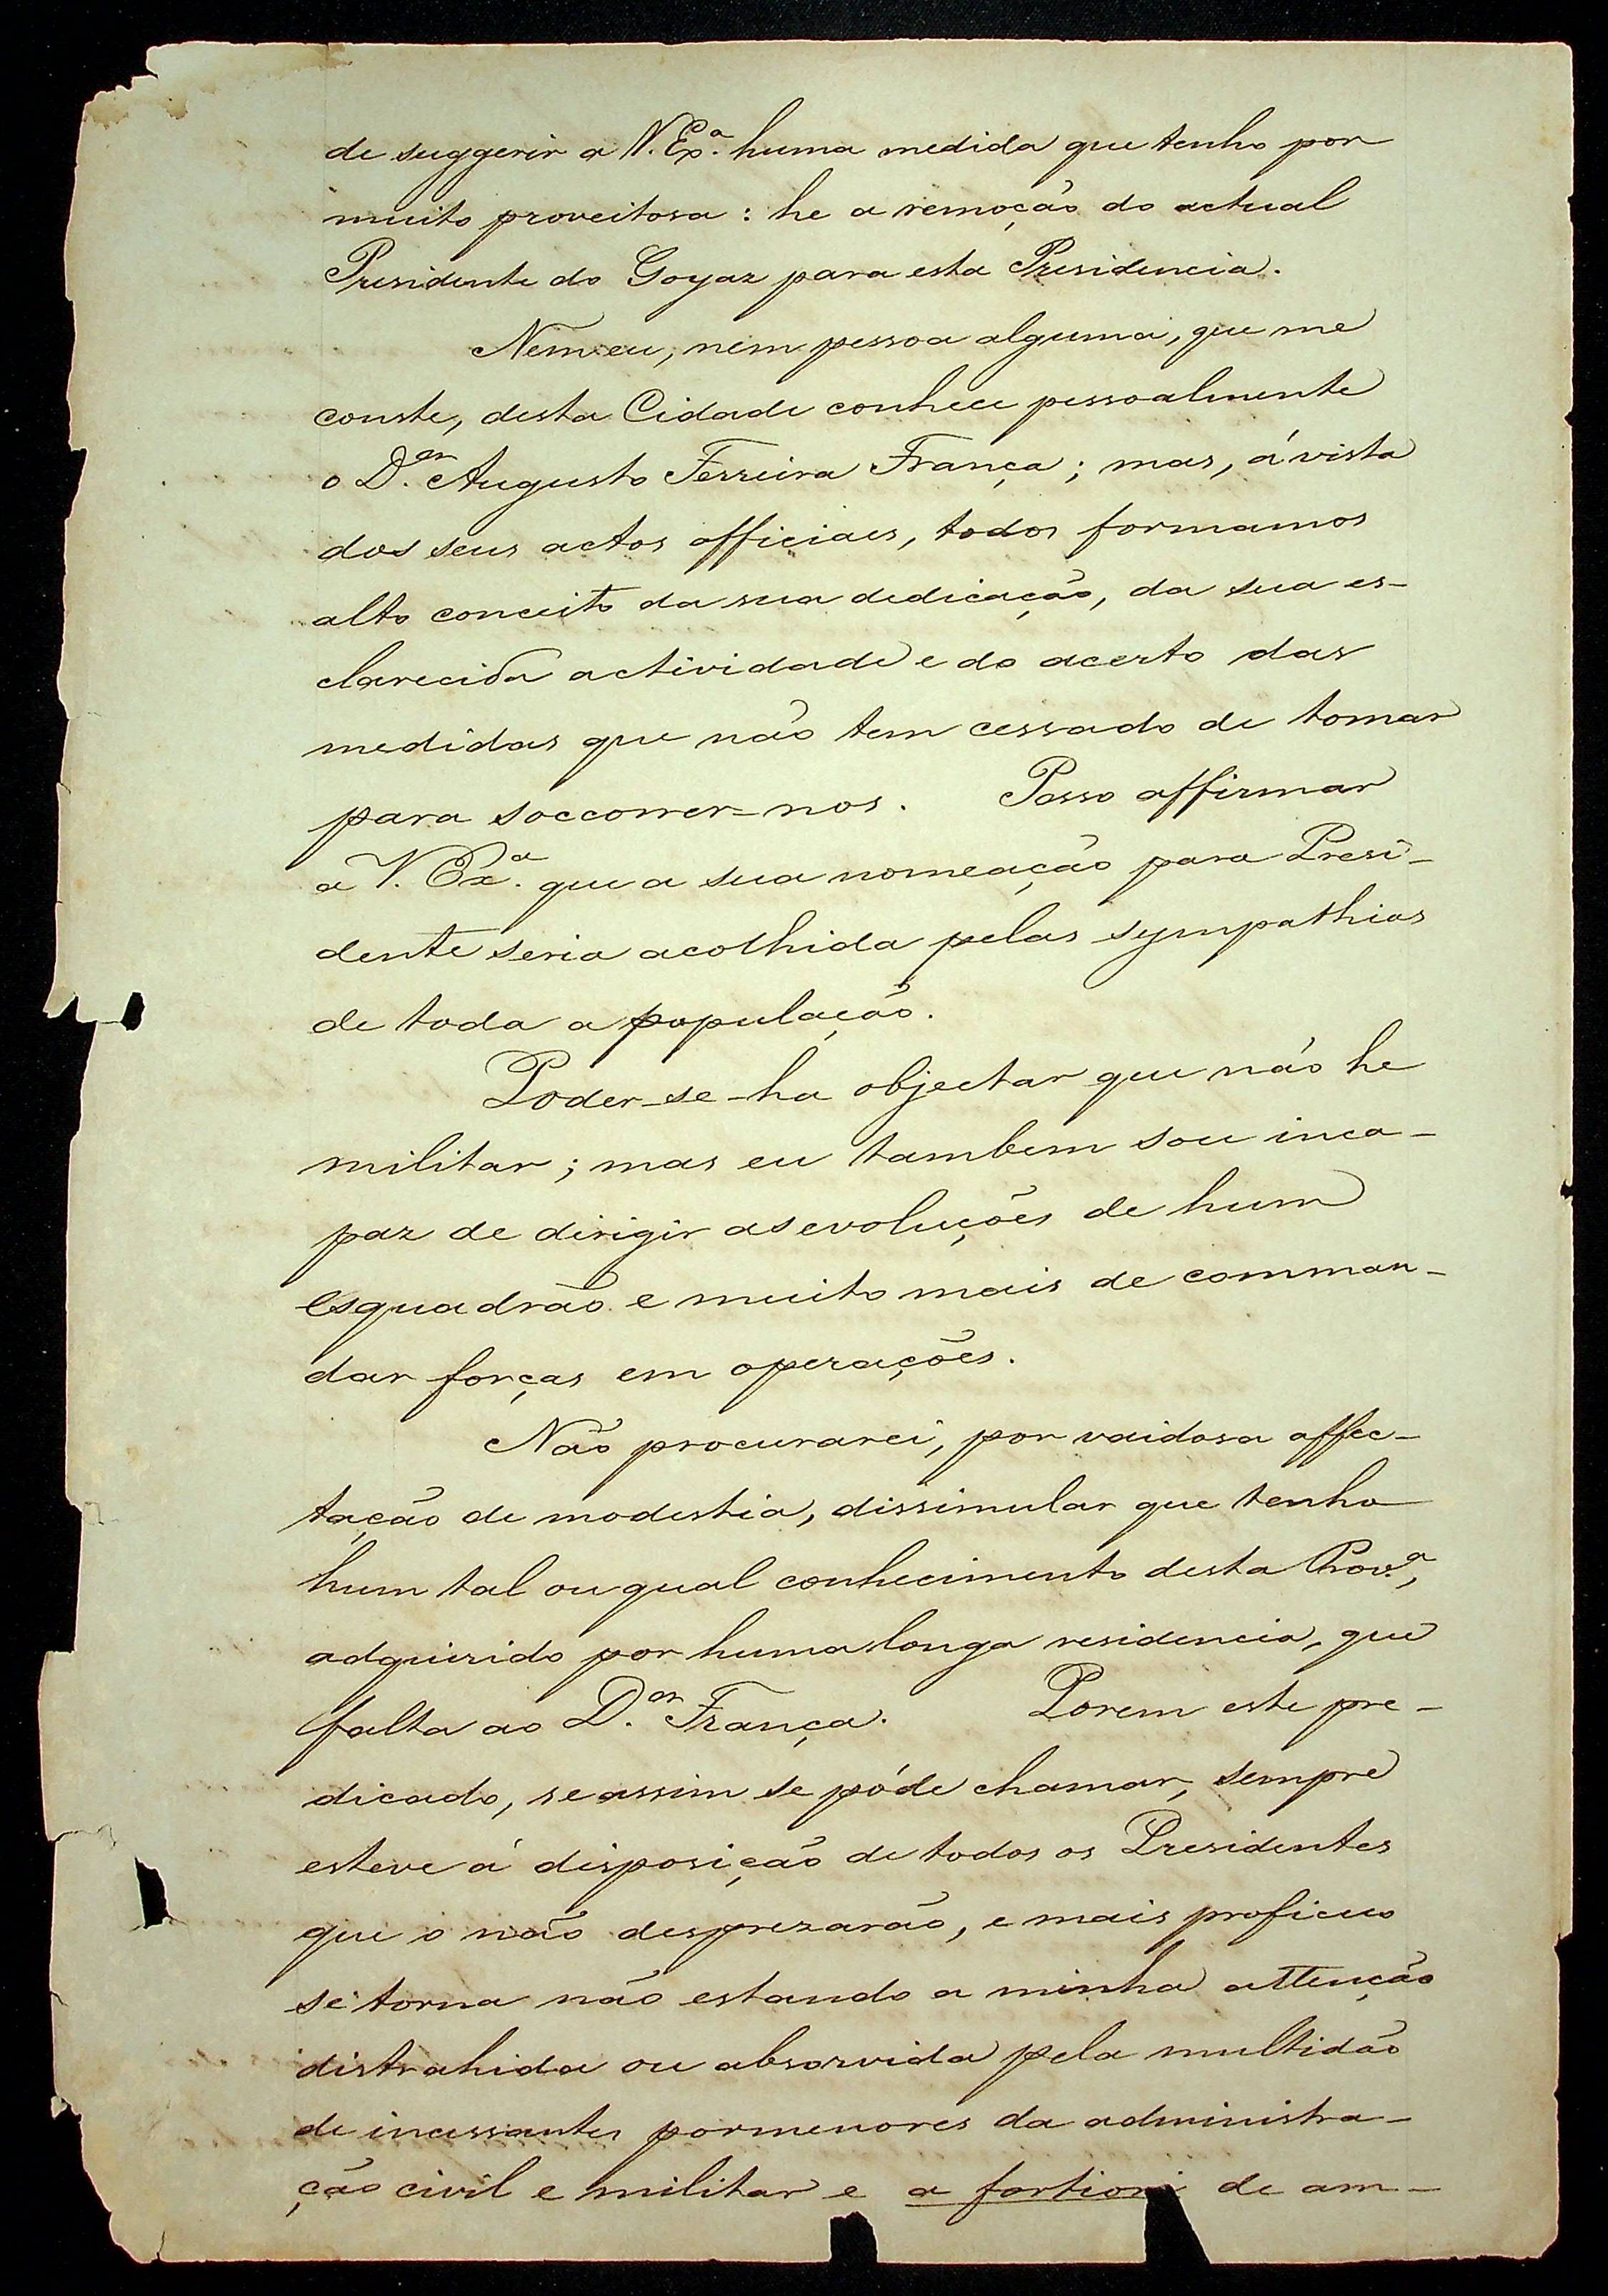 de suggerir a V. Ex.ª huma medida que tenho por
muito proveitosa: he a remoção do actual
Presidente do Goyaz para esta Presidencia.
Nem eu, nem pessoa alguma, que me
conste, desta Cidade conhece pessoalmente
o D.or Augusto Ferreira França; mas, á vista
dos seus actos officiaes, todos formamos
alto conceito da sua dedicação, da sua es-
clarecida actividade e do acerto das
medidas que não tem cessado de tomar
para soccorrer-nos. Posso affirmar
a V. Ex.ª que a sua nomeação para Presi-
dente seria acolhida pelas sympathias
de toda a população.
Poder-se-ha objectar que não he
militar; mas eu tambem sou inca-
paz de dirigir as evoluções de hum
esquadrão e muito mais de comman-
dar forças em operações.
Não procurarei, por vaidosa affec-
tação de modestia, dissimular que tenho
hum tal ou qual conhecimento desta Prov.ª,
adquirido por huma longa residencia, que
falta ao D.or França. Porem este pre-
dicado, se assim se póde chamar, sempre
esteve á disposição de todos os Presidentes
que o não desprezarão, e mais proficuo
se torna não estando a minha attenção
distrahida ou absorvida pela multidão
de incessantes pormenores da administra-
ção civil e militar e a fortiori de am-